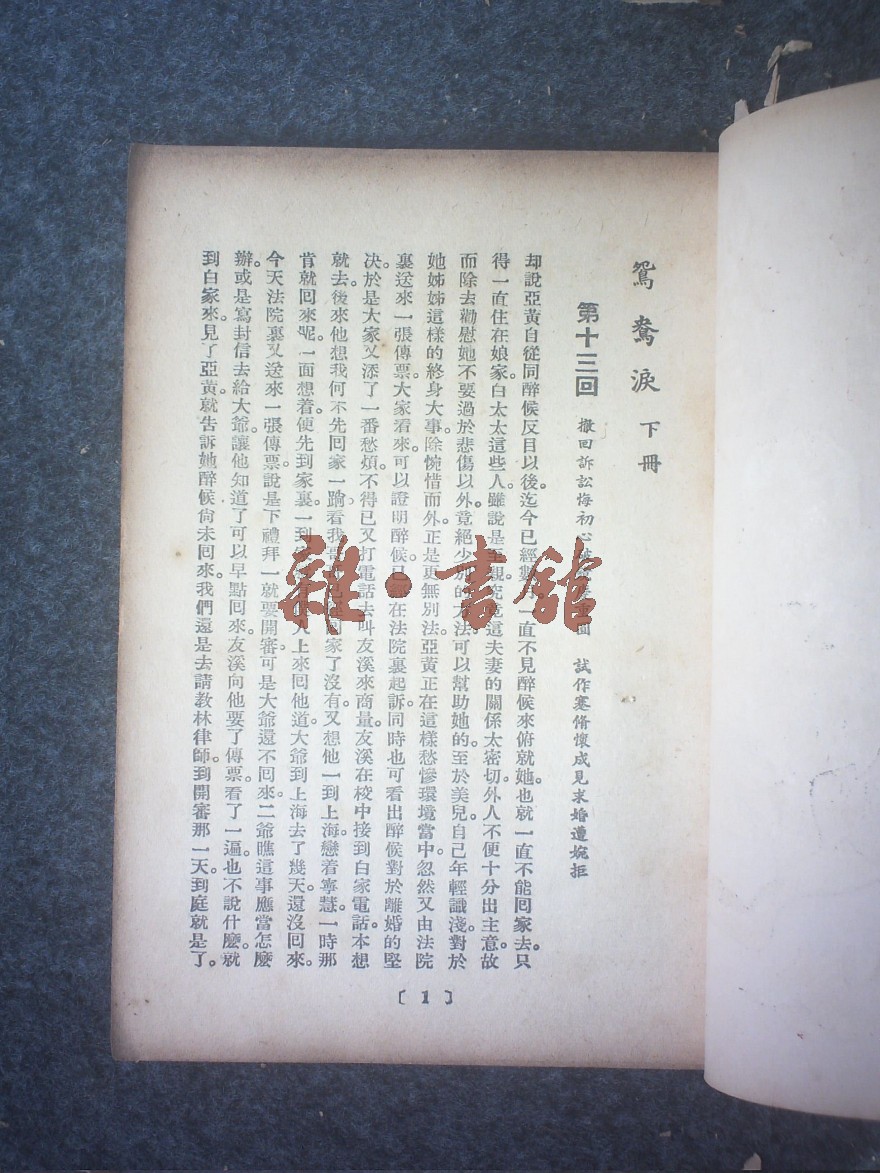 鴛鴦淚 下冊
第十三回 撤回訴訟悔初心 重圓 試作蹇脩懷成見求婚遭婉拒
却說亞黃自從同醉候反目以後。迄今已經數 一直不見醉候來俯就她。也就一直不能回家去。只
得一直住在娘家。白太太這些人。雖說是至親。究竟這夫妻的關係太密切。外人不便十分出主意。故
而除去勸慰她不要過於悲傷以外。竟絕少別的 法可以幫助她的。至於美兒。自己年輕識淺。對於
她姊姊這樣的終身大事。除惋惜而外。正是更無別法。亞黃正在這樣愁慘環境當中。忽然又由法院
裏送來一張傳票。大家看來。可以證明醉候已經在法院裏起訴。同時也可看出醉候對於離婚的堅
決。於是大家又添了一番愁煩。不得已又打電話去叫友溪來商量。友溪在校中接到白家電話。本想
就去。後來他想我何不先回家一躺。看我哥 已 回家了沒有。又想他一到上海。戀着寧慧。一時那
肯就回來呢。一面想着。便先到家裏。一到 人上來回他道。大爺到上海去了幾天。還沒回來。
今天法院裏又送來一張傳票。說是下禮拜一就要開審。可是大爺還不回來。二爺瞧這事應當怎麼
辦。或是寫封信去給大爺。讓他知道了可以早點回來。友溪向他要了傳票。看了一遍。也不說什麼。就
到白家來。見了亞黃。就告訴她醉候尚未回來。我們還是去請教林律師。到開審那一天。到庭就是了。
〔1〕
雜·書館